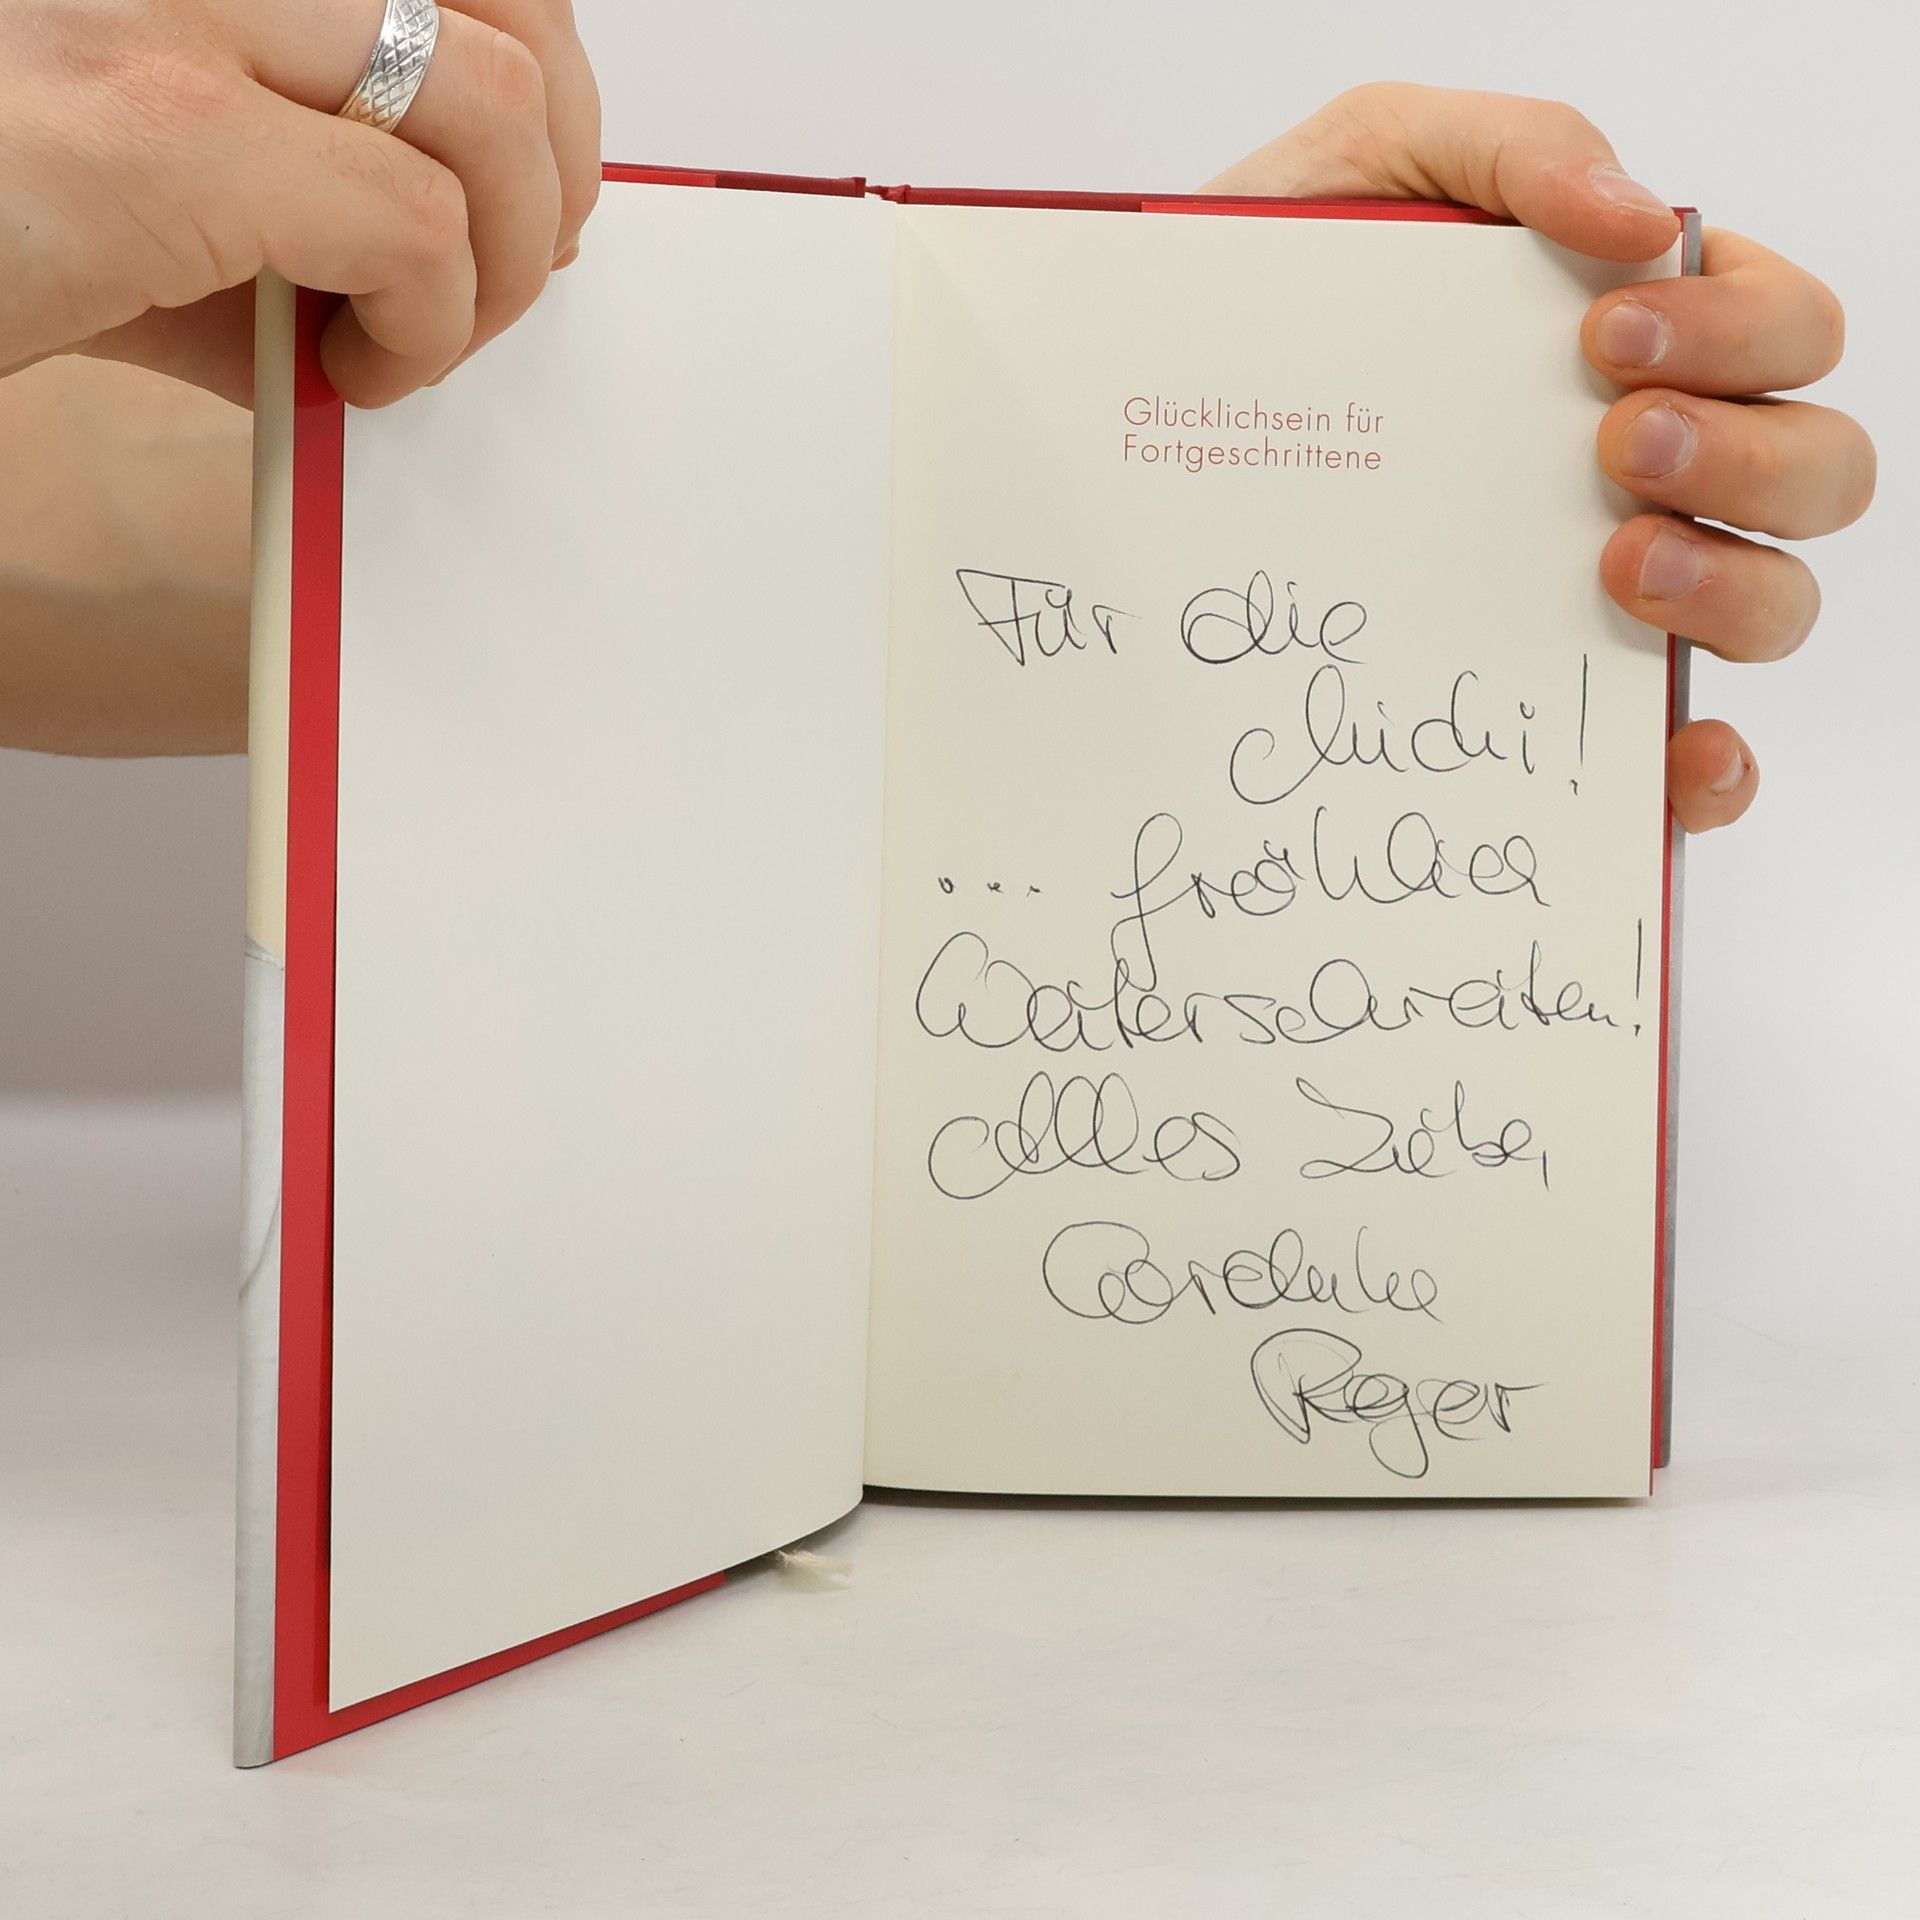 Glücklichsein für
Fortgeschrittene
Für die
Michi!
... fröhlich
Weiterschreiten!
Alles Liebe,
Reger